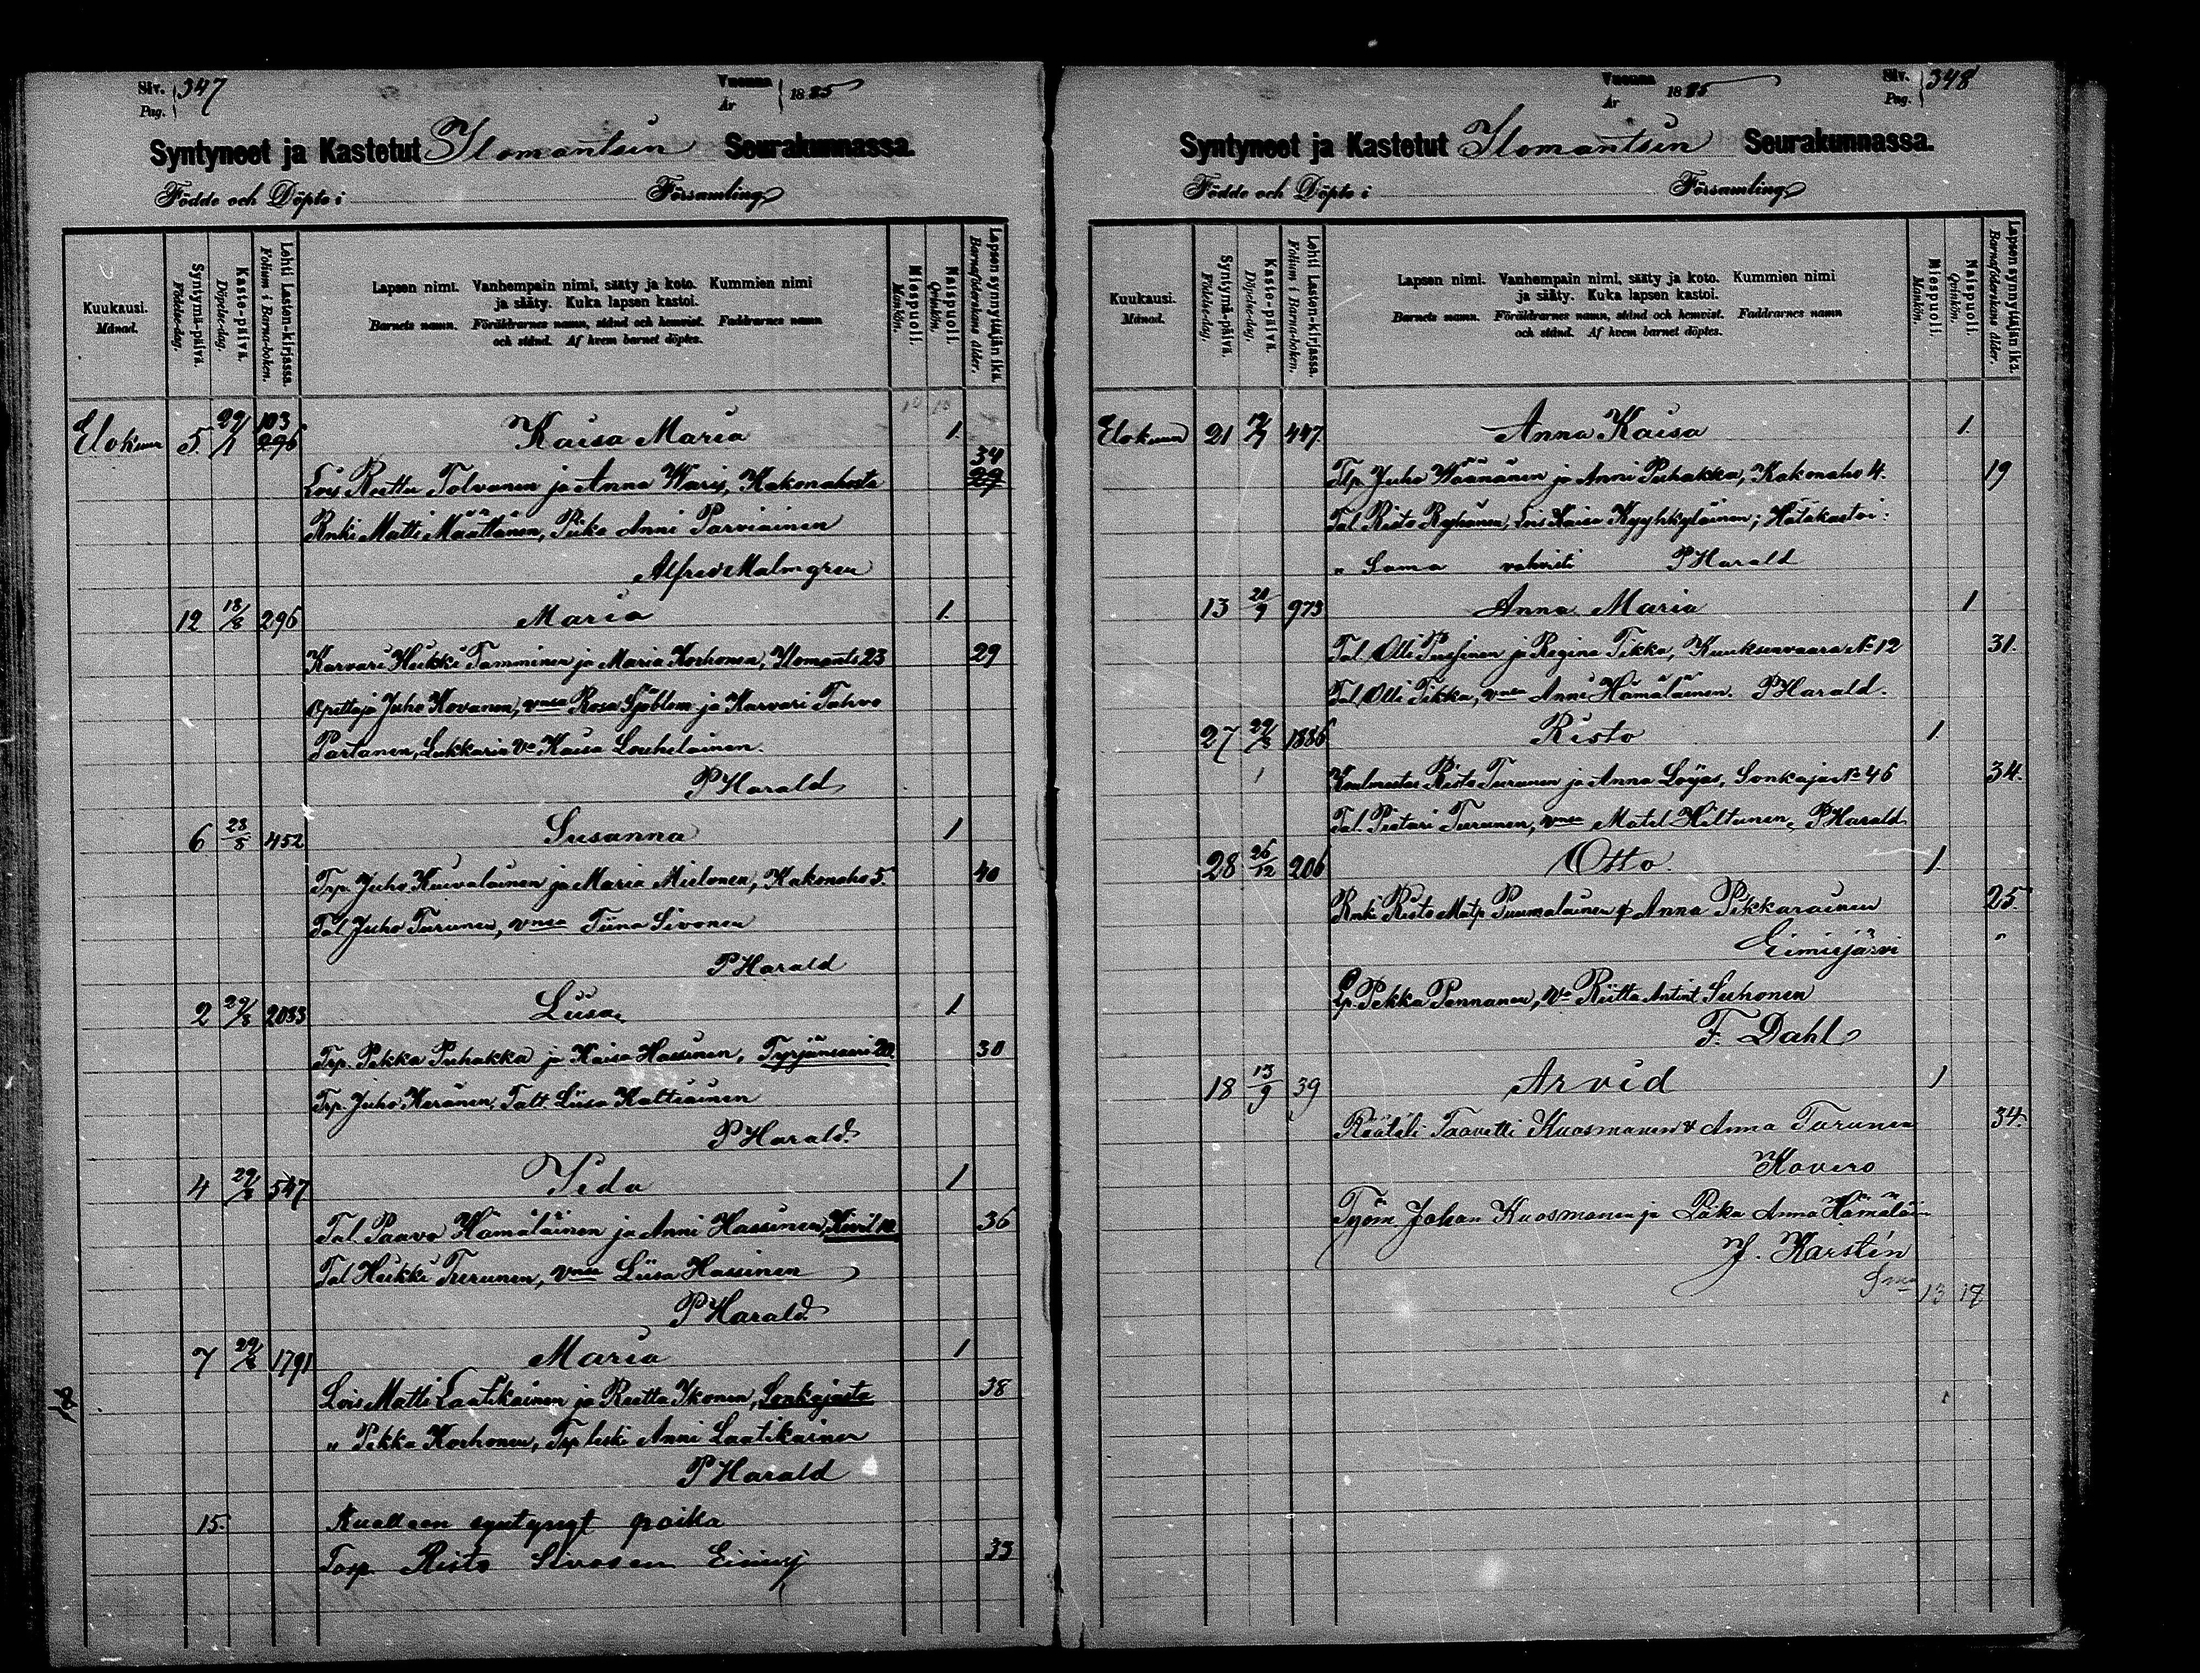 Siv. Pag. 347
Vuonna År 1885
Syntyneet ja Kastetut Ilomantsin Seurakunnassa.
Födde och Döpte i Församling
Kuukausi. Månad.
Syntymä-päivä. Födelse-dag.
Kaste-päivä. Döpelse-dag.
Lehti Lasten-kirjassa. Folium i Barna-boken.
Lapsen nimi. Vanhempain nimi, sääty ja koto. Kummien nimi
ja sääty. Kuka lapsen kastoi.
Barnets namn. Föräldrarnes namn, stånd och hemvist. Faddrarnes namn
och stånd. Af hvem barnet döptes.
Miespuoli. Mankön.
Naispuoli. Qvinkön.
Lapsensynnyttäjän ikä. Barnaföderskans ålder.
10 13
103
Elokuun 5. 29/ 296 Kaisa Maria 1.
34
Lois Reittu Tolvanen ja Anna Waris, Kakonahosta 29
Renki Matti Määttänen, Piika Anni Parviainen
Alfred Malmgren
12 18/8 296 Maria 1.
Karvari Heikki Tamminen ja Maria Korhonen, Ilomants 23 29
Opettaja Juho Kovanen, vmsa Rosa Sjöblom ja Karvari Tahvo
Partanen, Lukkarin Vo Kaisa Louhelainen.
P Harald
6 28/8 452 Susanna 1
Trp. Juho Kuivalainen ja Maria Mielonen, Kakonaho 5. 40
Tal Juho Turunen, vmsa Tiina Sivonen
P Harald
2 29/8 2033 Liisa 1
Trp. Pekka Puhakka ja Kaisa Hassinen, Tyrjänsaari 20. 30
Trp. Juho Keränen, Talt. Liisa Kattiainen
P Harald.
4 29/8 547 Iida 1
Tal. Paavo Hämäläinen ja Anni Hassinen, Kivil 10. 36
Tal Heikki Turunen, vmsa Liisa Hassinen
P Harald.
7 29/8 1791 Maria 1
Lois Matti Laatikainen ja Reitta Ikonen, Sonkajasta 38
" Pekka Korhonen, Trp leski Anni Laatikainen
P Harald
15. Kuolleen syntynyt poika
Torp. Risto Sivosen Eimisj 33
Siv. Pag. 348
Vuonna År 1885
Syntyneet ja Kastetut Ilomantsin Seurakunnassa.
Födde och Döpte i Församling
Kuukausi. Månad.
Syntymä-päivä. Födelse-dag.
Kaste-päivä. Döpelse-dag.
Lehti Lasten-kirjassa. Folium i Barna-boken.
Lapsen nimi. Vanhempain nimi, sääty ja koto. Kummien nimi
ja sääty. Kuka lapsen kastoi.
Barnets namn. Föräldrarnes namn, stånd och hemvist. Faddrarnes namn
och stånd. Af hvem barnet döptes.
Miespuoli. Mankön.
Naispuoli. Qvinkön.
Lapsensynnyttäjän ikä. Barnaföderskans ålder.
Elokuun 21 447. Anna Kaisa 1.
Tlp. Juho Wäänänen ja Anni Puhakka, Kakonaho 4. 19
Tal. Risto Ryhänen, Lois Kaisa Kyyhkyläinen; Hätäkastoi:
" Sama vahvisti P Harald
13 20/9 973 Anna Maria 1
Tal. Olli Pussinen ja Regina Tikka, Kuuksenvaara No 12 31.
Tal. Olli Tikka, vmsa Anni Hämäläinen. P Harald.
27 29/8 1886 Risto 1.
Koulmestar. Risto Turunen ja Anna Löyas, Sonkaja No 46 34.
Tal. Pietari Turunen, vmsa Matel Hiltunen, P Harald
28 26/12 206 Otto. 1.
Renki Risto Matp. Puumalainen & Anna Pikkarainen 25.
Eimisjärvi "
Lp. Pekka Pennanen, Vo Riitta Antint. Suhonen
F. Dahl
18 13/9 39 Arvid 1
Räätäli Taavetti Kuosmanen & Anna Turunen 34.
Kovero
Työm. Johan Kuosmanen ja Piika Anna Hämäläi-
J. Karstén
Sma 13 17